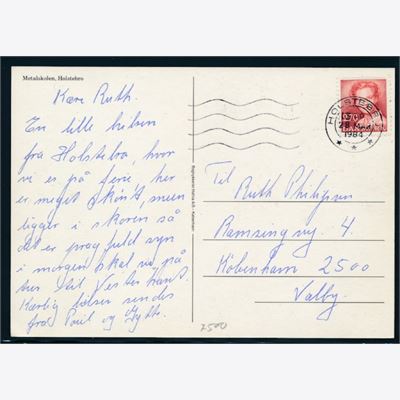 Metalskolen, Holstebro
Kære Ruth.
En lille hilsen
fra Holstebro, hvor
vi er på ferie, her
er meget skønt, mun
ligger i skoven så
det er prag fuld syn
i morgen skal vi på
tur til Vesterhavet.
Kærlig hilsen sendes
fra Poul og Gyth.
HOLSTEBRO
1984
Til Ruth Philipsen
Ramsingvej 4.
København 2500
Valby.
2500